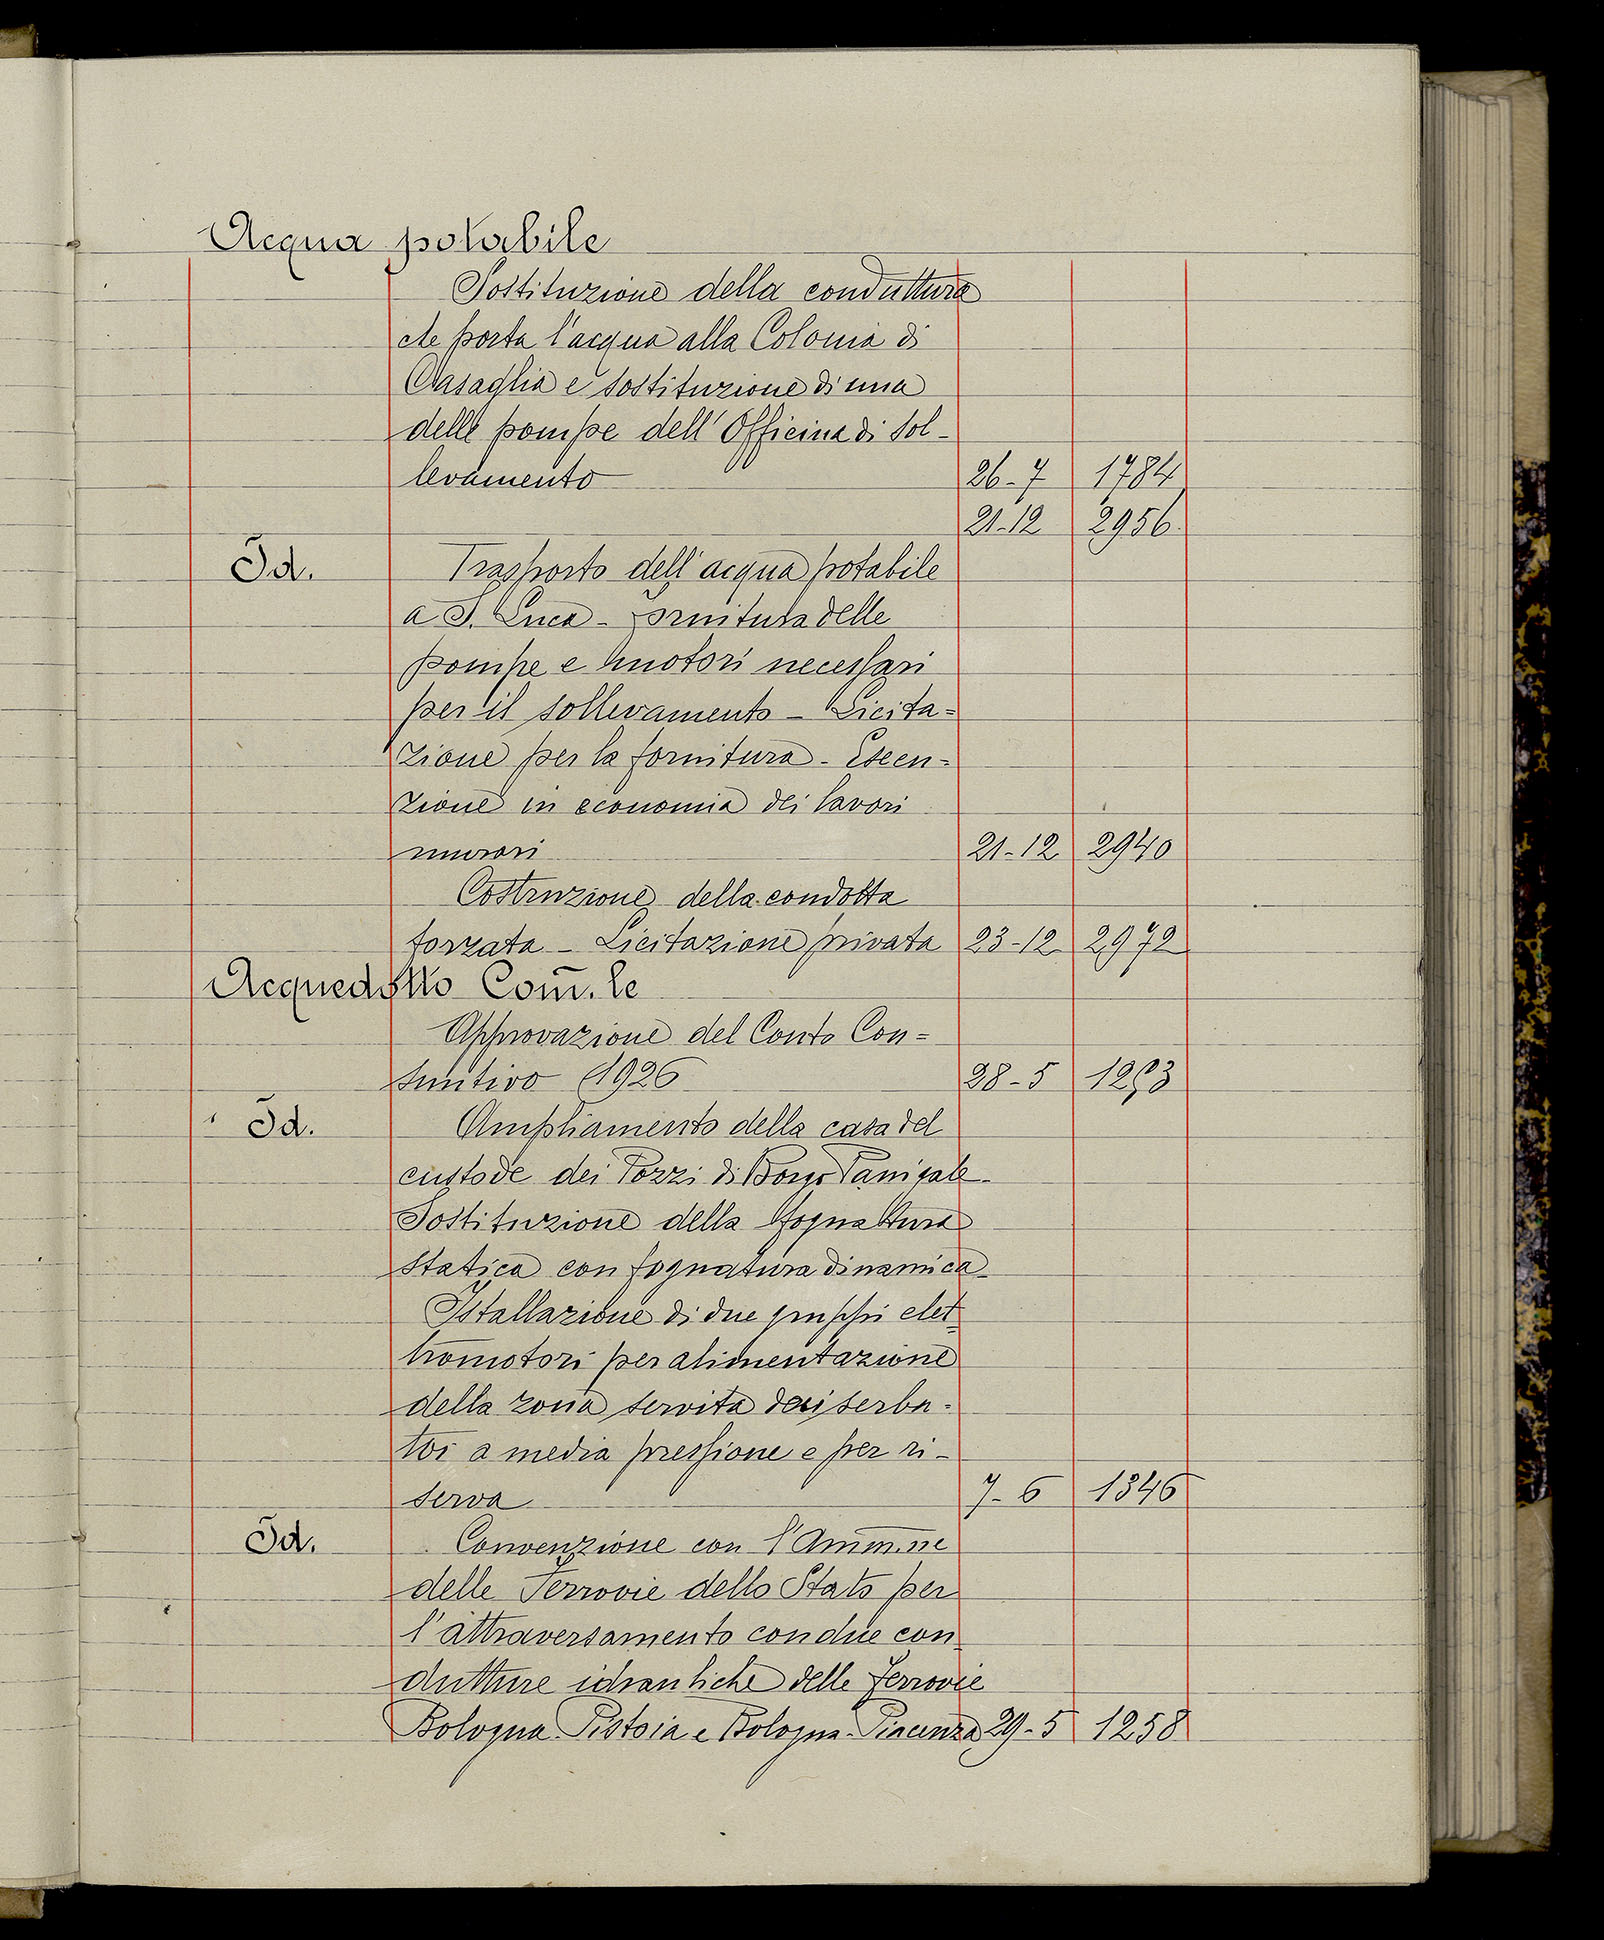 Acqua potabile
Sostituzione della conduttura
che porta l'acqua alla Colonia di
Casaglia e sostituzione di una
delle pompe dell'Officina di sol-
levamento 26-7 1784
21-12 2956
Id. Trasporto dell'acqua potabile
a S. Luca - Fornitura delle
pompe e motori necessari
per il sollevamento - Licita=
zione per la fornitura - Esecu=
zione in economia dei lavori
murari 21-12 2940
Costruzione della condotta
forzata - Licitazione privata 23-12 2972
Acquedotto Com.le
Approvazione del Conto Con=
suntivo 1926 28-5
Id. Ampliamento della casa del
custode dei Pozzi di Borgo Panigale -
Sostituzione della fognattura
statica con fognatura dinamica -
Istallazione di due gruppi elet
tromotori per alimentazione
della zona servita dai serba-
toi a media pressione e per ri-
serva 7-6 1346
Id. Convenzione con l'Amm.ne
delle Ferrovie dello Stato per
l'attraversamento con due con
dutture idrauliche delle ferrovie
Bologna-Pistoia e Bologna-Piacenza 29-5 1258